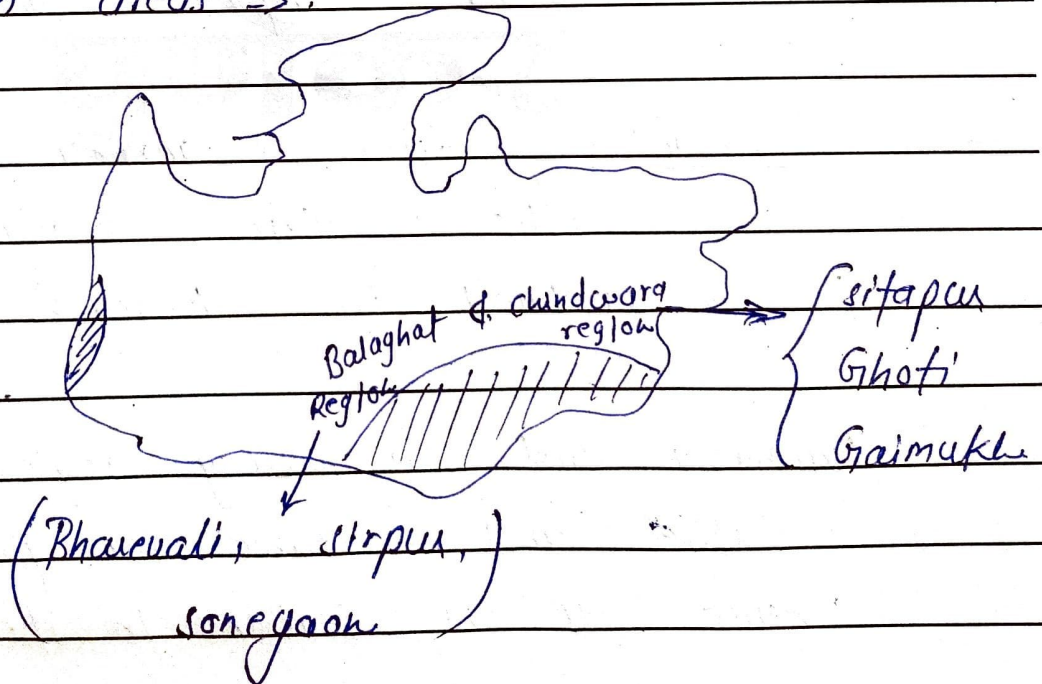 areas →.
Balaghat & chindwara
Region region
sitapur
Ghoti
Gaimukh
(Bharevali, sirpur,
sonegaon)